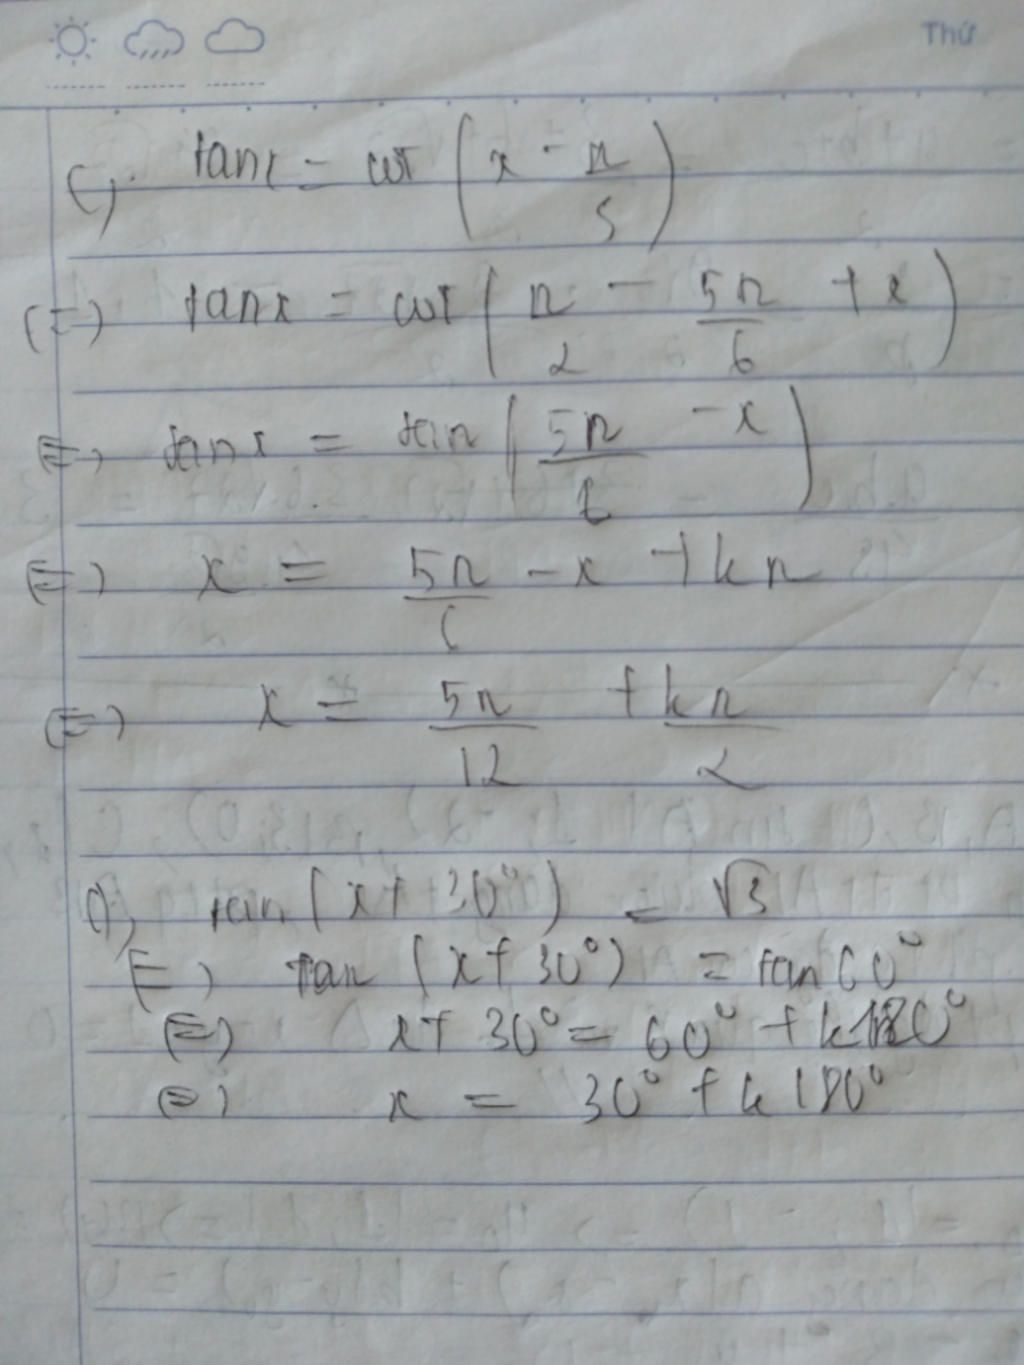 Thứ
c) tanx = cot (x - π/3)
(=) tanx = cot (π/2 - 5π/6 + x)
(=) tanx = tan (5π/6 - x)
(=) x = 5π/6 - x + kπ
(=) x = 5π/12 + kπ/2
d) tan (x + 30°) = √3
(=) tan (x + 30°) = tan 60°
(=) x + 30° = 60° + k180°
(=) x = 30° + k180°